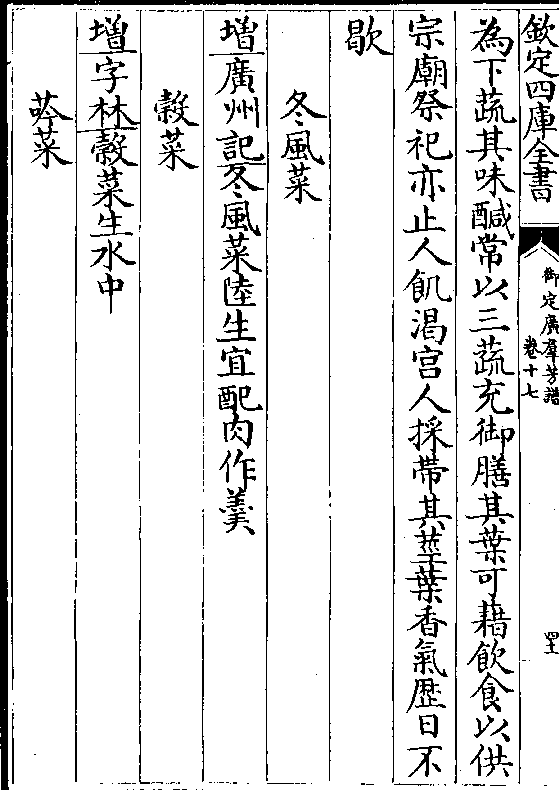 欽定四庫全書
御定廣羣芳譜
卷十七
為下蔬其味醎常以三蔬充御膳其葉可藉飲食以供
宗廟祭祀亦止人飢渴宫人採帶其莖葉香氣歴日不
歇
冬風菜
増廣州記冬風菜陸生宜配肉作羮
䔇菜
増字林䔇菜生水中
莶菜